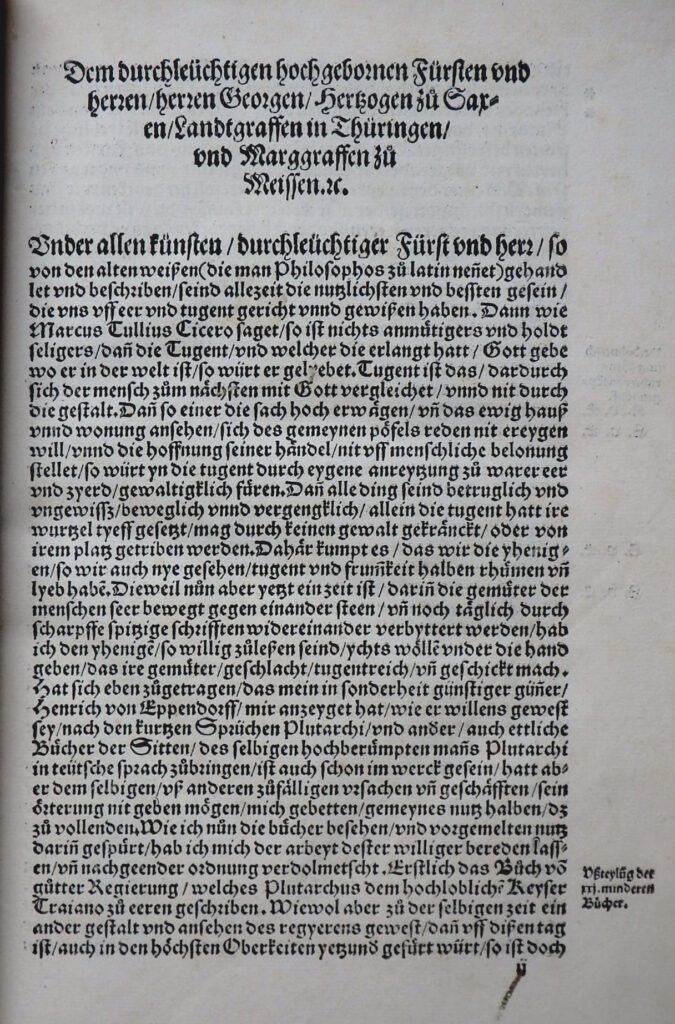 Dem durchleüchtigen hochgebornen Fürsten vnd
herren/herren Georgen/Hertzogen zů Sax⸗
en/Landtgraffen in Thüringen/
vnd Marggraffen zů
Meissen.ꝛc.
Vnder allen künsten/durchleüchtiger Fürst vnd herr/so
von den alten weißen(die man Philosophos zů latin neñet)gehand
let vnd beschriben/seind allezeit die nutzlichsten vnd bessten gesein/
die vns vff eer vnd tugent gericht vnnd gewißen haben. Dann wie
Marcus Tullius Cicero saget/so ist nichts anmůtigers vnd holdt
seligers/dañ die Tugent/vnd welcher die erlangt hatt/Gott gebe
wo er in der welt ist/so würt er gelyebet. Tugent ist das/dardurch
sich der mensch zům nächsten mit Gott vergleichet/vnnd nit durch
die gestalt. Dañ so einer die sach hoch erwägen/vñ das ewig hauß
vnnd wonung ansehen/sich des gemeynen pöfels reden nit ereygen
will/vnnd die hoffnung seiner händel/nit vff menschliche belonung
stellet/so würt yn die tugent durch eygene anreytzung zů warer eer
vnd zyerd/gewaltigklich fůren. Dañ alle ding seind betruglich vnd
vngewissz/beweglich vnnd vergengklich/allein die tugent hatt ire
wurtzel tyeff gesetzt/mag durch keinen gewalt gekränckt/oder von
irem platz getriben werden. Dahär kumpt es/das wir die yhenig⸗
en/so wir auch nye gesehen/tugent vnd frumkeit halben rhůmen vñ
lyeb habē. Dieweil nůn aber yetzt ein zeit ist/dariñ die gemůter der
menschen seer bewegt gegen einander steen/vñ noch täglich durch
scharpffe spitzige schrifften widereinander verbyttert werden/hab
ich den yhenigē/so willig zůleßen seind/ychts wöllē vnder die hand
geben/das ire gemůter/geschlacht/tugentreich/vñ geschickt mach.
Hat sich eben zůgetragen/das mein in sonderheit günstiger güñer/
Henrich von Eppendorff/mir anzeyget hat/wie er willens gewest
sey/nach den kurtzen Sprüchen Plutarchi/vnd ander/auch ettliche
Bücher der Sitten/des selbigen hochberümpten mañs Plutarchi
in teütsche sprach zůbringen/ist auch schon im werck gesein/hatt ab⸗
er dem selbigen/vß anderen zůfälligen vrsachen vñ geschäfften/sein
örterung nit geben mögen/mich gebetten/gemeynes nutz halben/dz
zů vollenden. Wie ich nůn die bücher besehen/vnd vorgemelten nutz
dariñ gespürt/hab ich mich der arbeyt dester williger bereden lass⸗
en/vñ nachgeender ordnung verdolmetscht. Erstlich das Bůch võ
gůtter Regierung/welches Plutarchus dem hochloblichē Keyser
Traiano zů eeren geschriben. Wiewol aber zů der selbigen zeit ein
ander gestalt vnd ansehen des regyerens gewest/dañ vff dißen tag
ist/auch in den höchsten Oberkeiten yetzund gefůrt würt/so ist doch
Vßteylũg der
xxj. minderen
Bücher.
ij